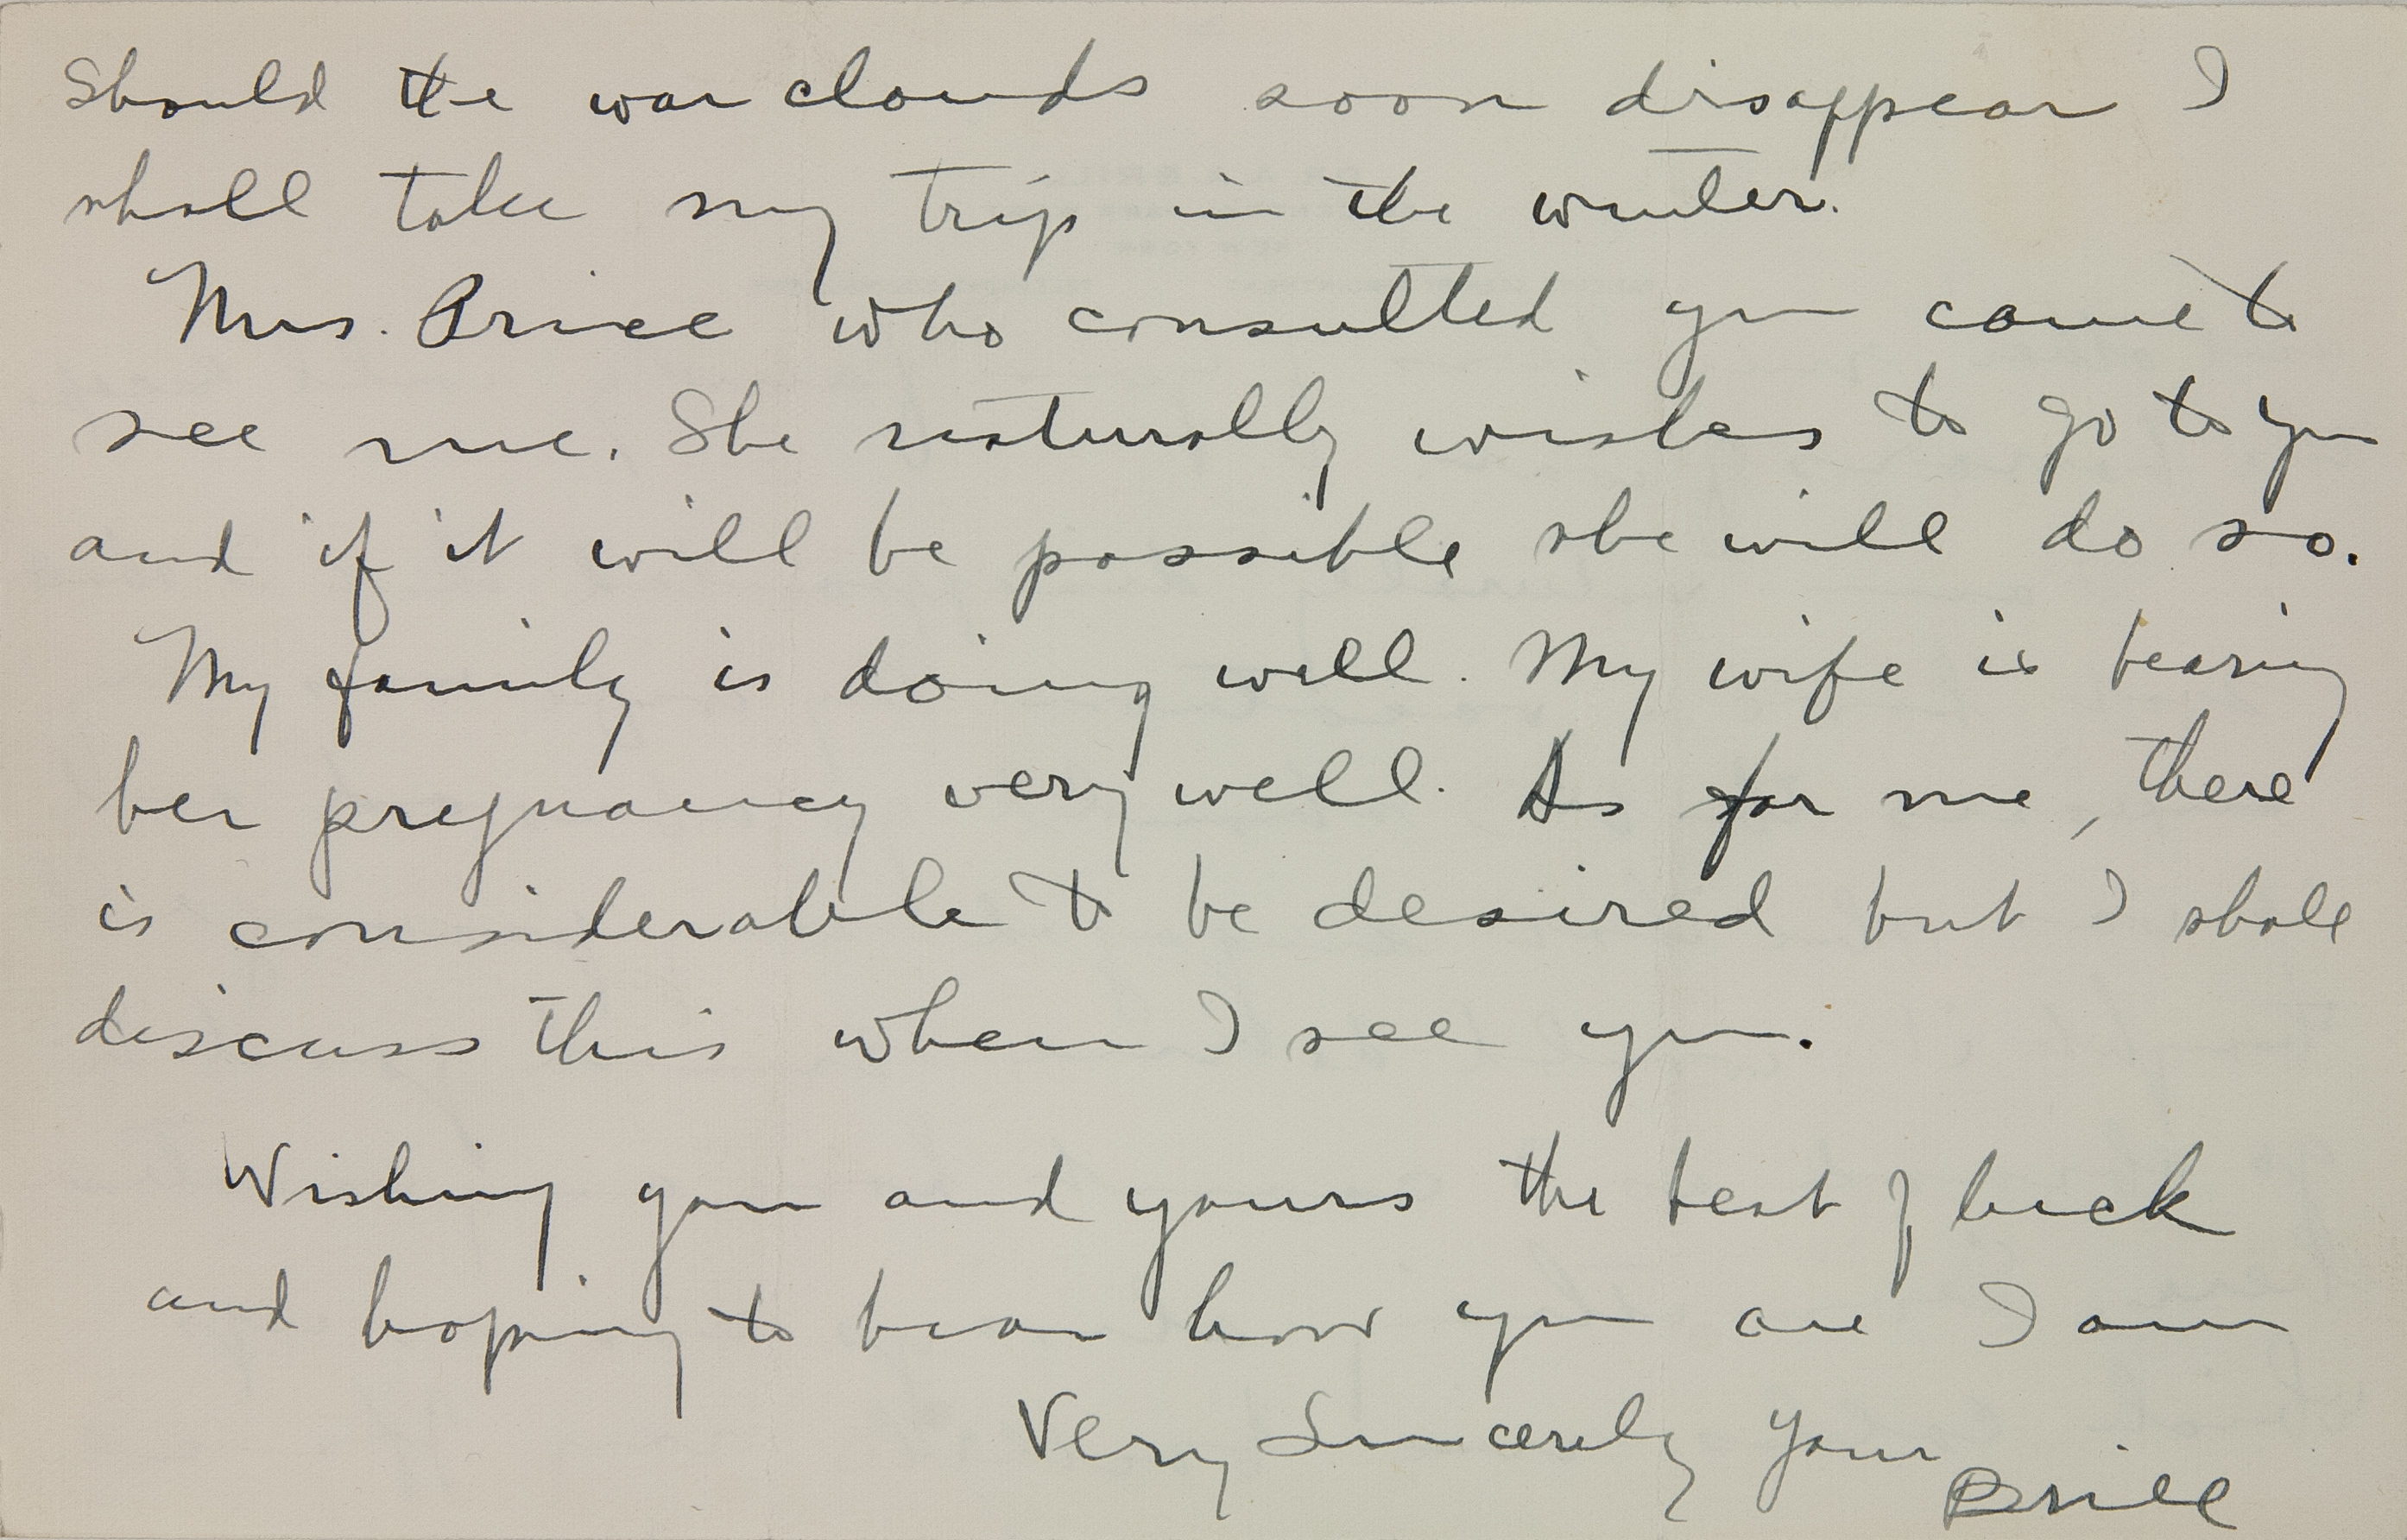 Should the war clouds soon disappear I
shall take my trip in the winter.
Mrs. Price who consulted you came to
see me. She naturally wishes to go to you
and if it will be possible she will do so.
My family is doing well. My wife is bearing
her pregnancy very well. As for me, there
is considerable to be desired but I shall
discuss this when I see you.
Wishing you and yours the best of luck
and hoping to hear how you are I am
Very Sincerely Your
Brill